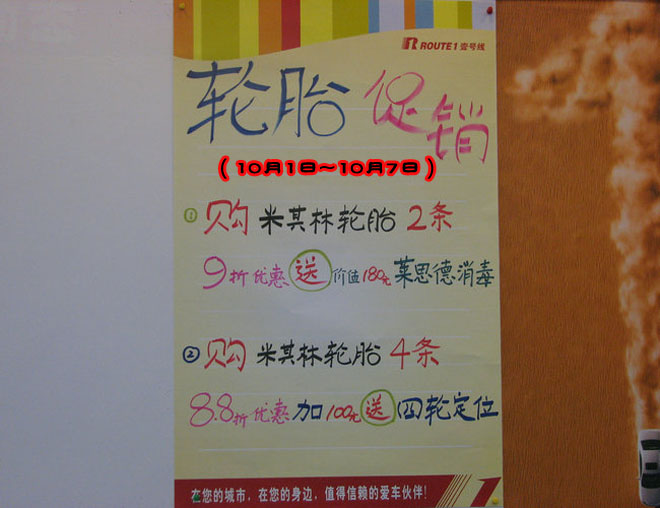 ROUTE 1 壹号线
轮胎 促销
(10月1日～10月7日)
① 购 米其林轮胎 2条
9折优惠 送 价值180元 莱思德消毒
② 购 米其林轮胎 4条
8.8折优惠 加100元 送 四轮定位
在您的城市，在您的身边，值得信赖的爱车伙伴！
1